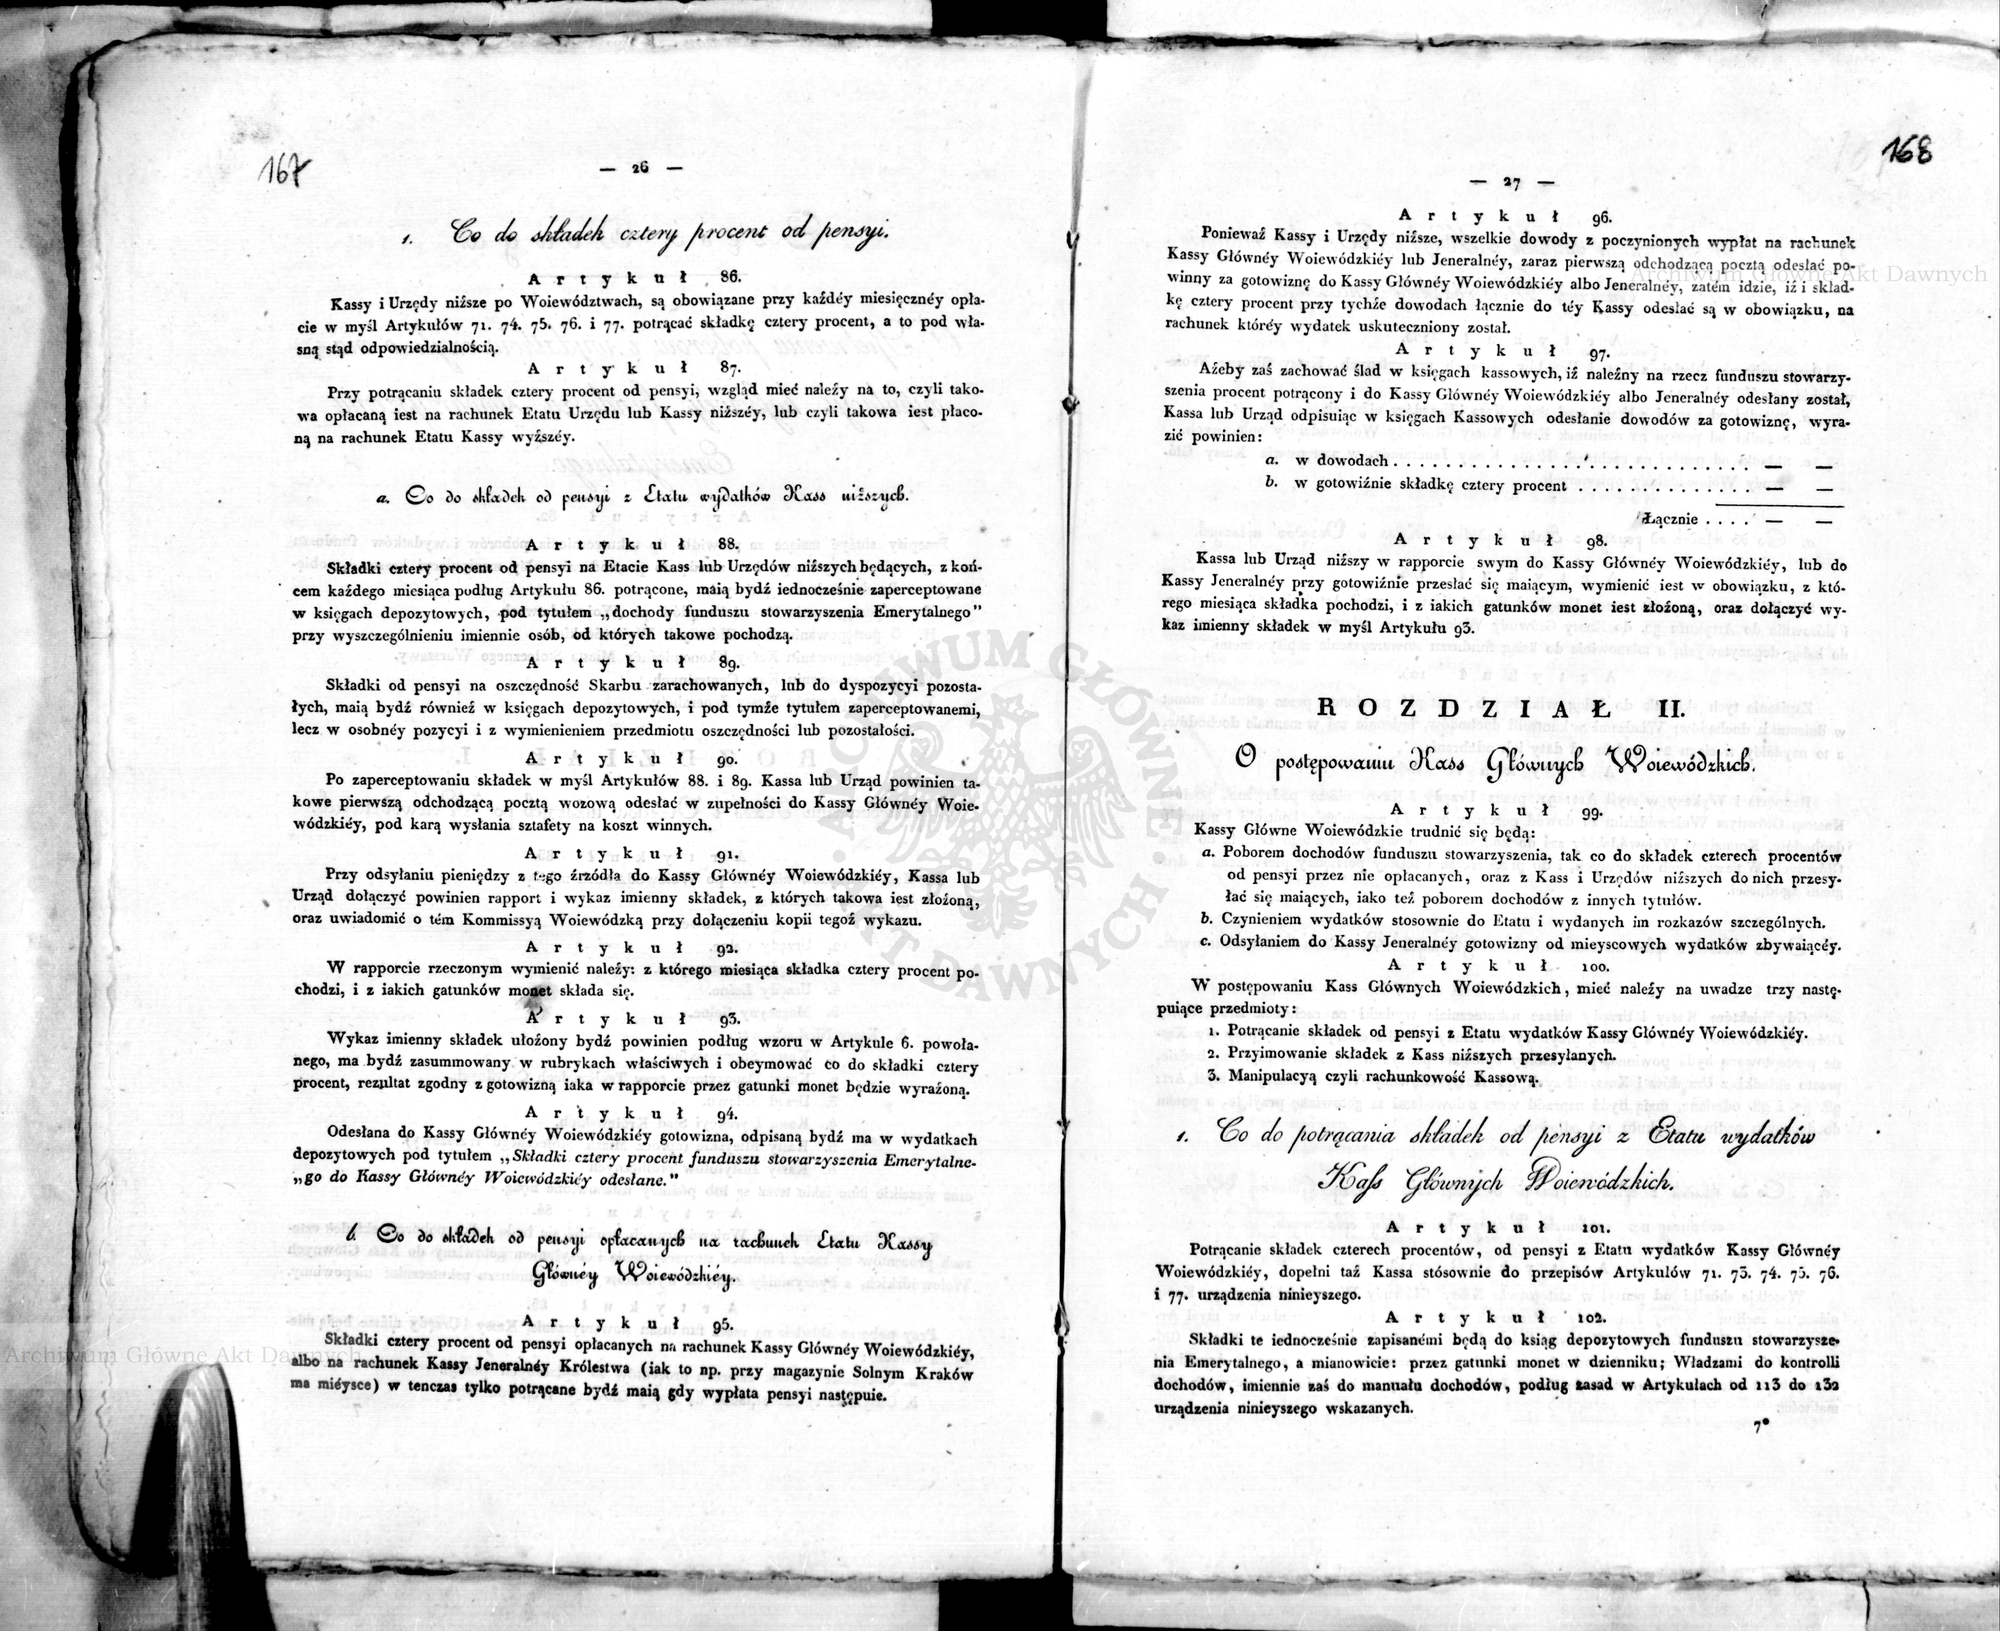 167
— 26 —
1. Co do składek cztery procent od pensyi.
Artykuł 86.
Kassy i Urzędy niźsze po Woiewództwach, są obowiązane przy kaźdéy miesięcznéy opła-
cie w myśl Artykułów 71. 74. 75. 76. i 77. potrącać składkę cztery procent, a to pod wła-
sną stąd odpowiedzialnością.
Artykuł 87.
Przy potrącaniu składek cztery procent od pensyi, wzgląd mieć naleźy na to, czyli tako-
wa opłacaną iest na rachunek Etatu Urzędu lub Kassy niźszéy, lub czyli takowa iest płaco-
ną na rachunek Etatu Kassy wyźszéy.
a. Co do składek od pensyi z Etatu wydatków Kass niźszych.
Artykuł 88.
Składki cztery procent od pensyi na Etacie Kass lub Urzędów niźszych będących, z koń-
cem kaźdego miesiąca podług Artykułu 86. potrącone, maią bydź iednocześnie zaperceptowane
w księgach depozytowych, pod tytułem „dochody funduszu stowarzyszenia Emerytalnego"
przy wyszczególnieniu imiennie osób, od których takowe pochodzą.
Artykuł 89.
Składki od pensyi na oszczędność Skarbu zarachowanych, lub do dyspozycyi pozosta-
łych, maią bydź równieź w księgach depozytowych, i pod tymźe tytułem zaperceptowanemi,
lecz w osobnéy pozycyi i z wymienieniem przedmiotu oszczędności lub pozostałości.
Artykuł 90.
Po zaperceptowaniu składek w myśl Artykułów 88. i 89. Kassa lub Urząd powinien ta-
kowe pierwszą odchodzącą pocztą wozową odesłać w zupełności do Kassy Głównéy Woie-
wódzkiéy, pod karą wysłania sztafety na koszt winnych.
Artykuł 91.
Przy odsyłaniu pieniędzy z tego źrzódła do Kassy Głównéy Woiewódzkiéy, Kassa lub
Urząd dołączyć powinien rapport i wykaz imienny składek, z których takowa iest złoźoną,
oraz uwiadomić o tém Kommissyą Woiewódzką przy dołączeniu kopii tegoź wykazu.
Artykuł 92.
W rapporcie rzeczonym wymienić naleźy: z którego miesiąca składka cztery procent po-
chodzi, i z iakich gatunków monet składa się.
Artykuł 93.
Wykaz imienny składek ułoźony bydź powinien podług wzoru w Artykule 6. powoła-
nego, ma bydź zasummowany w rubrykach właściwych i obeymować co do składki cztery
procent, rezultat zgodny z gotowizną iaka w rapporcie przez gatunki monet będzie wyraźoną.
Artykuł 94.
Odesłana do Kassy Głównéy Woiewódzkiéy gotowizna, odpisaną bydź ma w wydatkach
depozytowych pod tytułem „Składki cztery procent funduszu stowarzyszenia Emerytalne-
„go do Kassy Głównéy Woiewódzkiéy odesłane."
b. Co do składek od pensyi opłacanych na rachunek Etatu Kassy
Głównéy Woiewódzkiéy.
Artykuł 95.
Składki cztery procent od pensyi opłacanych na rachunek Kassy Głównéy Woiewódzkiéy,
albo na rachunek Kassy Jeneralnéy Królestwa (iak to np. przy magazynie Solnym Kraków
ma miéysce) w tenczas tylko potrącane bydź maią gdy wypłata pensyi następuie.
168
— 27 —
Artykuł 96.
Poniewaź Kassy i Urzędy niźsze, wszelkie dowody z poczynionych wypłat na rachunek
Kassy Głównéy Woiewódzkiéy lub Jeneralnéy, zaraz pierwszą odchodzącą pocztą odesłać po-
winny za gotowiznę do Kassy Głównéy Woiewódzkiéy albo Jeneralnéy, zatém idzie, iź i skład-
kę cztery procent przy tychźe dowodach łącznie do téy Kassy odesłać są w obowiązku, na
rachunek któréy wydatek uskuteczniony został.
Artykuł 97.
Aźeby zaś zachować ślad w księgach kassowych, iź naleźny na rzecz funduszu stowarzy-
szenia procent potrącony i do Kassy Głównéy Woiewódzkiéy albo Jeneralnéy odesłany został,
Kassa lub Urząd odpisuiąc w księgach Kassowych odesłanie dowodów za gotowiznę, wyra-
zić powinien:
a. w dowodach . . . . . . . . . . . . . . . . . . . . . . . . . . . . . — —
b. w gotowiźnie składkę cztery procent . . . . . . . . . . . . . . — —
Łącznie . . . . — —
Artykuł 98.
Kassa lub Urząd niźszy w rapporcie swym do Kassy Głównéy Woiewódzkiéy, lub do
Kassy Jeneralnéy przy gotowiźnie przesłać się maiącym, wymienić iest w obowiązku, z któ-
rego miesiąca składka pochodzi, i z iakich gatunków monet iest złoźoną, oraz dołączyć wy-
kaz imienny składek w myśl Artykułu 93.
ROZDZIAŁ II.
O postępowaniu Kass Głównych Woiewódzkich.
Artykuł 99.
Kassy Główne Woiewódzkie trudnić się będą:
a. Poborem dochodów funduszu stowarzyszenia, tak co do składek czterech procentów
od pensyi przez nie opłacanych, oraz z Kass i Urzędów niźszych do nich przesy-
łać się maiących, iako teź poborem dochodów z innych tytułów.
b. Czynieniem wydatków stosownie do Etatu i wydanych im rozkazów szczególnych.
c. Odsyłaniem do Kassy Jeneralnéy gotowizny od mieyscowych wydatków zbywaiącéy.
Artykuł 100.
W postępowaniu Kass Głównych Woiewódzkich, mieć naleźy na uwadze trzy nastę-
puiące przedmioty:
1. Potrącanie składek od pensyi z Etatu wydatków Kassy Głównéy Woiewódzkiéy.
2. Przyimowanie składek z Kass niźszych przesyłanych.
3. Manipulacyą czyli rachunkowość Kassową.
1. Co do potrącania składek od pensyi z Etatu wydatków
Kass Głównych Woiewódzkich.
Artykuł 101.
Potrącanie składek czterech procentów, od pensyi z Etatu wydatków Kassy Głównéy
Woiewódzkiéy, dopełni taź Kassa stósownie do przepisów Artykułów 71. 73. 74. 75. 76.
i 77. urządzenia ninieyszego.
Artykuł 102.
Składki te iednocześnie zapisanémi będą do ksiąg depozytowych funduszu stowarzysze-
nia Emerytalnego, a mianowicie: przez gatunki monet w dzienniku; Władzami do kontrolli
dochodów, imiennie zaś do manuału dochodów, podług zasad w Artykułach od 113 do 132
urządzenia ninieyszego wskazanych.
7*
Archiwum Główne Akt Dawnych
Archiwum Główne Akt Dawnych
ARCHIWUM GŁÓWNE AKT DAWNYCH